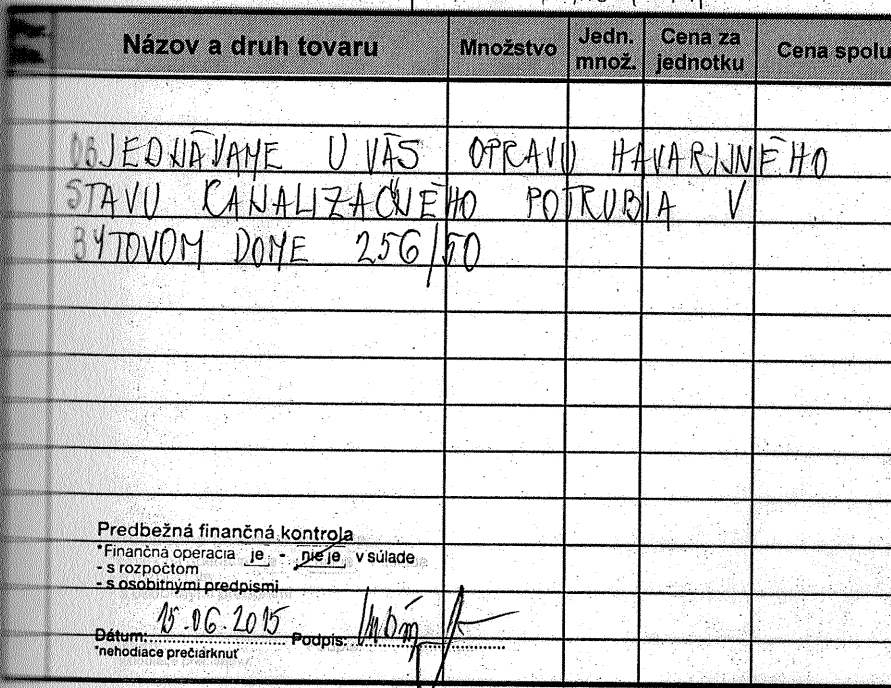 Názov a druh tovaru Množstvo Jedn. množ. Cena za jednotku Cena spolu
OBJEDNÁVAME U VÁS OPRAVU HAVARIJNÉHO
STAVU KANALIZAČNÉHO POTRUBIA V
BYTOVOM DOME 256/50
Predbežná finančná kontrola
*Finančná operácia je - nie je v súlade
- s rozpočtom
- s osobitnými predpismi
Dátum: 15.06.2015 Podpis:
*nehodiace prečiarknuť